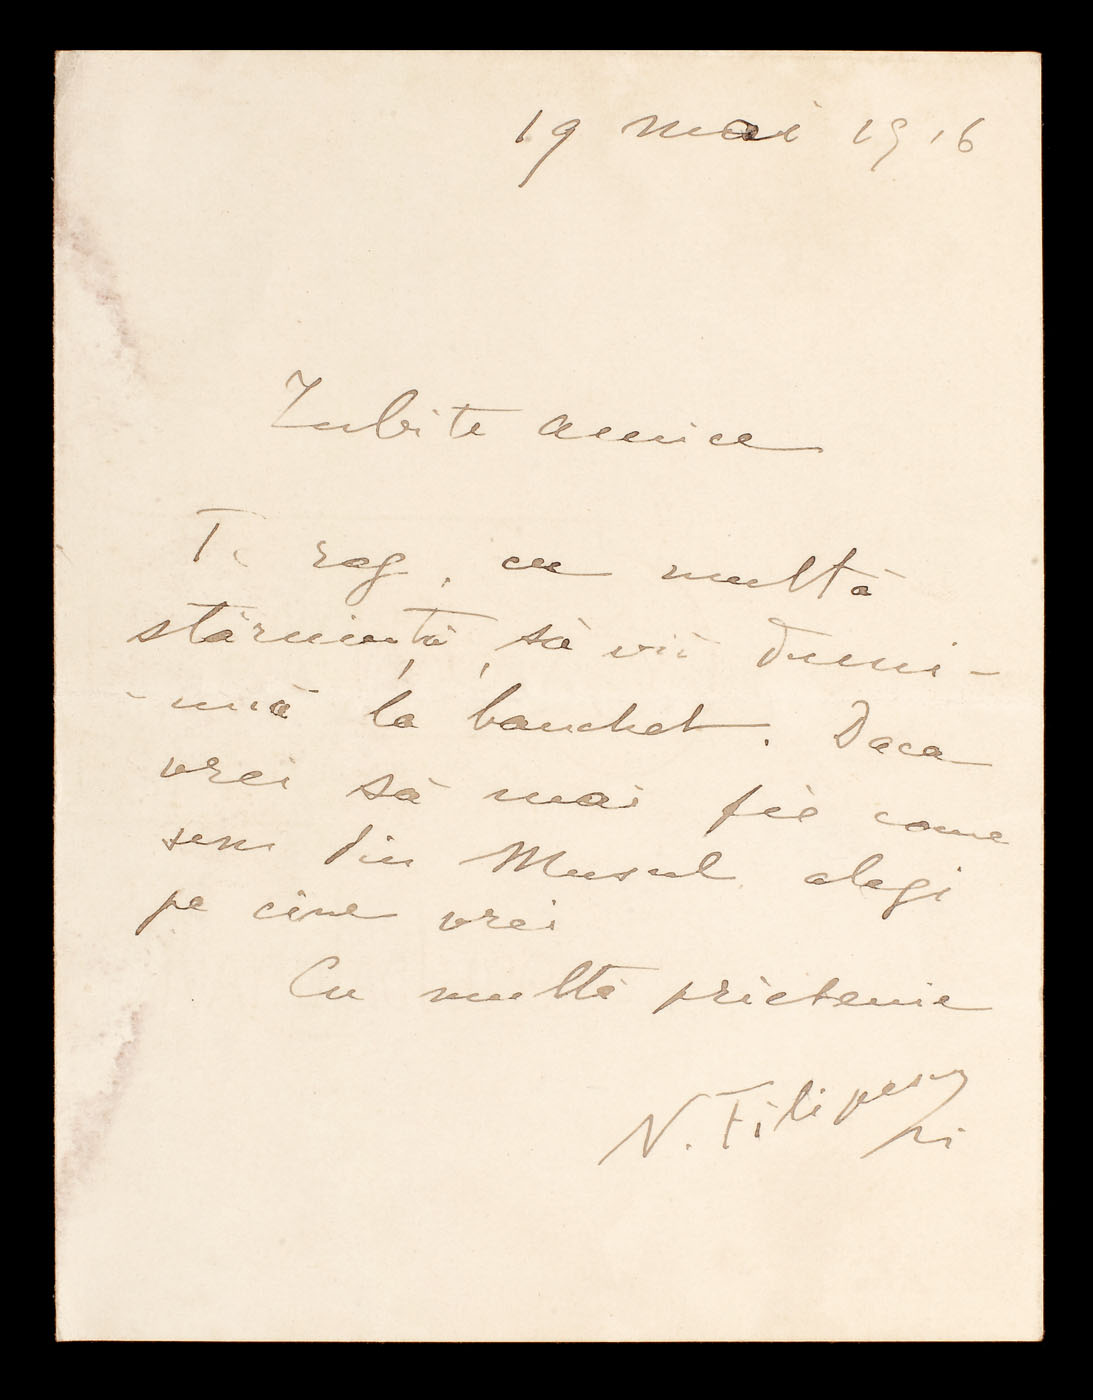 19 mai 1916
Iubite amice
Te rog, cu multă
stăruință, să vii Dumi-
-nică la banchet. Daca
vrei să mai fie come
seni din Muscel alegi
pe cine vrei
Cu multă prietenie
N. Filipescu